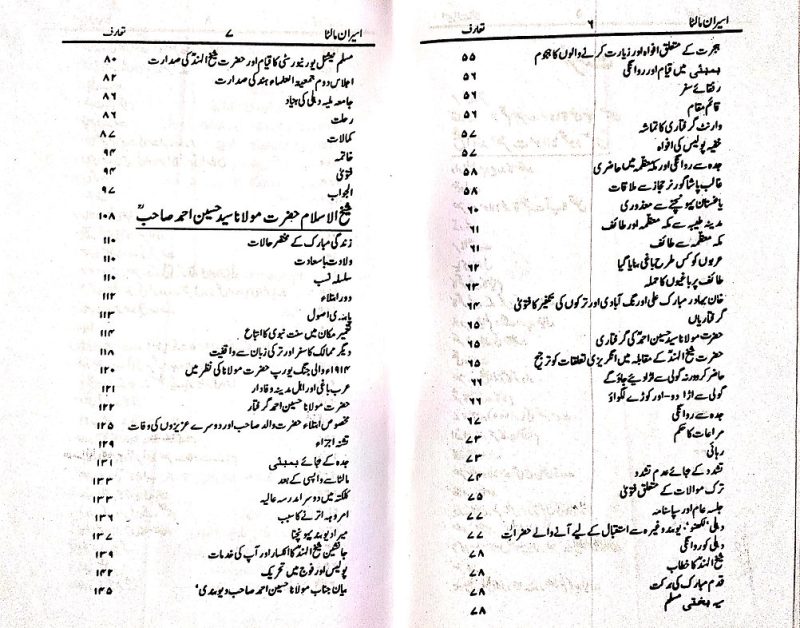 اسیران مالٹا ۶ تعارف
ہجرت کے متعلق افواہ اور زیارت کرنے والوں کا ہجوم ۵۵
بمبئی میں قیام اور روانگی ۵۶
رفقائے سفر ۵۶
قائم مقام ۵۶
وارنٹ گرفتاری کا تماشہ ۵۷
خفیہ پولیس کی افواہ ۵۷
جدہ سے روانگی اور مکہ معظمہ میں حاضری ۵۸
غالب پاشا گورنر حجاز سے ملاقات ۵۸
یاغستان پہونچنے سے معذوری ۶۰
مدینہ طیبہ سے مکہ معظمہ اور طائف ۶۱
مکہ معظمہ سے طائف ۶۱
عربوں کو کس طرح باغی بنایا گیا ۶۲
طائف پر باغیوں کا حملہ ۶۳
خان بہادر مبارک علی اورنگ آبادی اور ترکوں کی تکفیر کا فتویٰ ۶۴
گرفتاریاں ۶۵
حضرت مولانا سید حسین احمدؒ کی گرفتاری ۶۵
حضرت شیخ الہندؒ کے مقابلہ میں انگریزی تعلقات کو ترجیح ۶۵
حاضر کرو ورنہ گولی سے اڑا دیئے جاؤ گے ۶۶
گولی سے اڑا دو۔ اور کوڑے لگواؤ ۶۶
جدہ سے روانگی ۶۷
مراعات کا حکم ۷۳
رہائی ۷۳
تشدد کے بجائے عدم تشدد ۷۴
ترک موالات کے متعلق فتویٰ ۷۵
جلسہ عام اور سپاسنامہ ۷۷
دہلی، لکھنؤ، دیوبند وغیرہ سے استقبال کے لیے آنے والے حضرات ۷۷
دہلی کو روانگی ۷۸
شیخ الہندؒ کا خطاب ۷۸
قدم مبارک کی برکت ۷۸
سیہ بختی مسلم ۷۸
اسیران مالٹا ۷ تعارف
مسلم نیشنل یونیورسٹی کا قیام اور حضرت شیخ الہندؒ کی صدارت ۸۰
اجلاس دوم جمعیۃ العلماء ہند کی صدارت ۸۲
جامعہ ملیہ دہلی کی بنیاد ۸۶
رحلت ۸۶
کمالات ۸۷
خاتمہ ۹۴
فتویٰ ۹۴
الجواب ۹۷
شیخ الاسلام حضرت مولانا سید حسین احمد صاحبؒ ۱۰۸
زندگی مبارک کے مختصر حالات ۱۱۰
ولادت با سعادت ۱۱۰
سلسلہ نسب ۱۱۰
دور ابتلاء ۱۱۲
پابندی اصول ۱۱۳
تعمیر مکان میں سنت نبوی کا اتباع ۱۱۴
دیگر ممالک کا سفر اور ترکی زبان سے واقفیت ۱۱۸
۱۹۱۴ء والی جنگ یورپ حضرت مولانا کی نظر میں ۱۲۰
عرب باغی اور اہل مدینہ وفادار ۱۲۱
حضرت مولانا حسین احمد گرفتار ۱۲۲
مخصوص ابتلاء حضرت والد صاحب اور دوسرے عزیزوں کی وفات ۱۲۵
تشنہ اجزاء ۱۲۹
جدہ کے بجائے بمبئی ۱۳۱
مالٹا سے واپسی کے بعد ۱۳۳
کلکتہ میں دوسرا مدرسہ عالیہ ۱۳۳
امروہہ اترنے کا سبب ۱۳۶
میرا دیوبند پہونچنا ۱۳۷
جانشین شیخ الہندؒ کا انکسار اور آپ کی خدمات ۱۳۹
پولیس اور فوج میں تحریک ۱۴۲
بیان جناب مولانا حسین احمد صاحب دیوبندی‘ ۱۴۵